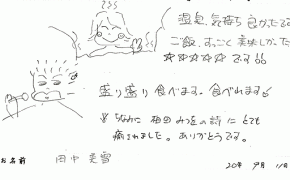 温泉、気持ち良かったです
ご飯、すっごく美味しかった
☆☆☆☆☆ です!!
盛り盛り食べます。食べれます!
ちなみに 相田みつをの詩に とても
癒されました。ありがとうです。
お名前 田中 美雪 20年 9月 11日